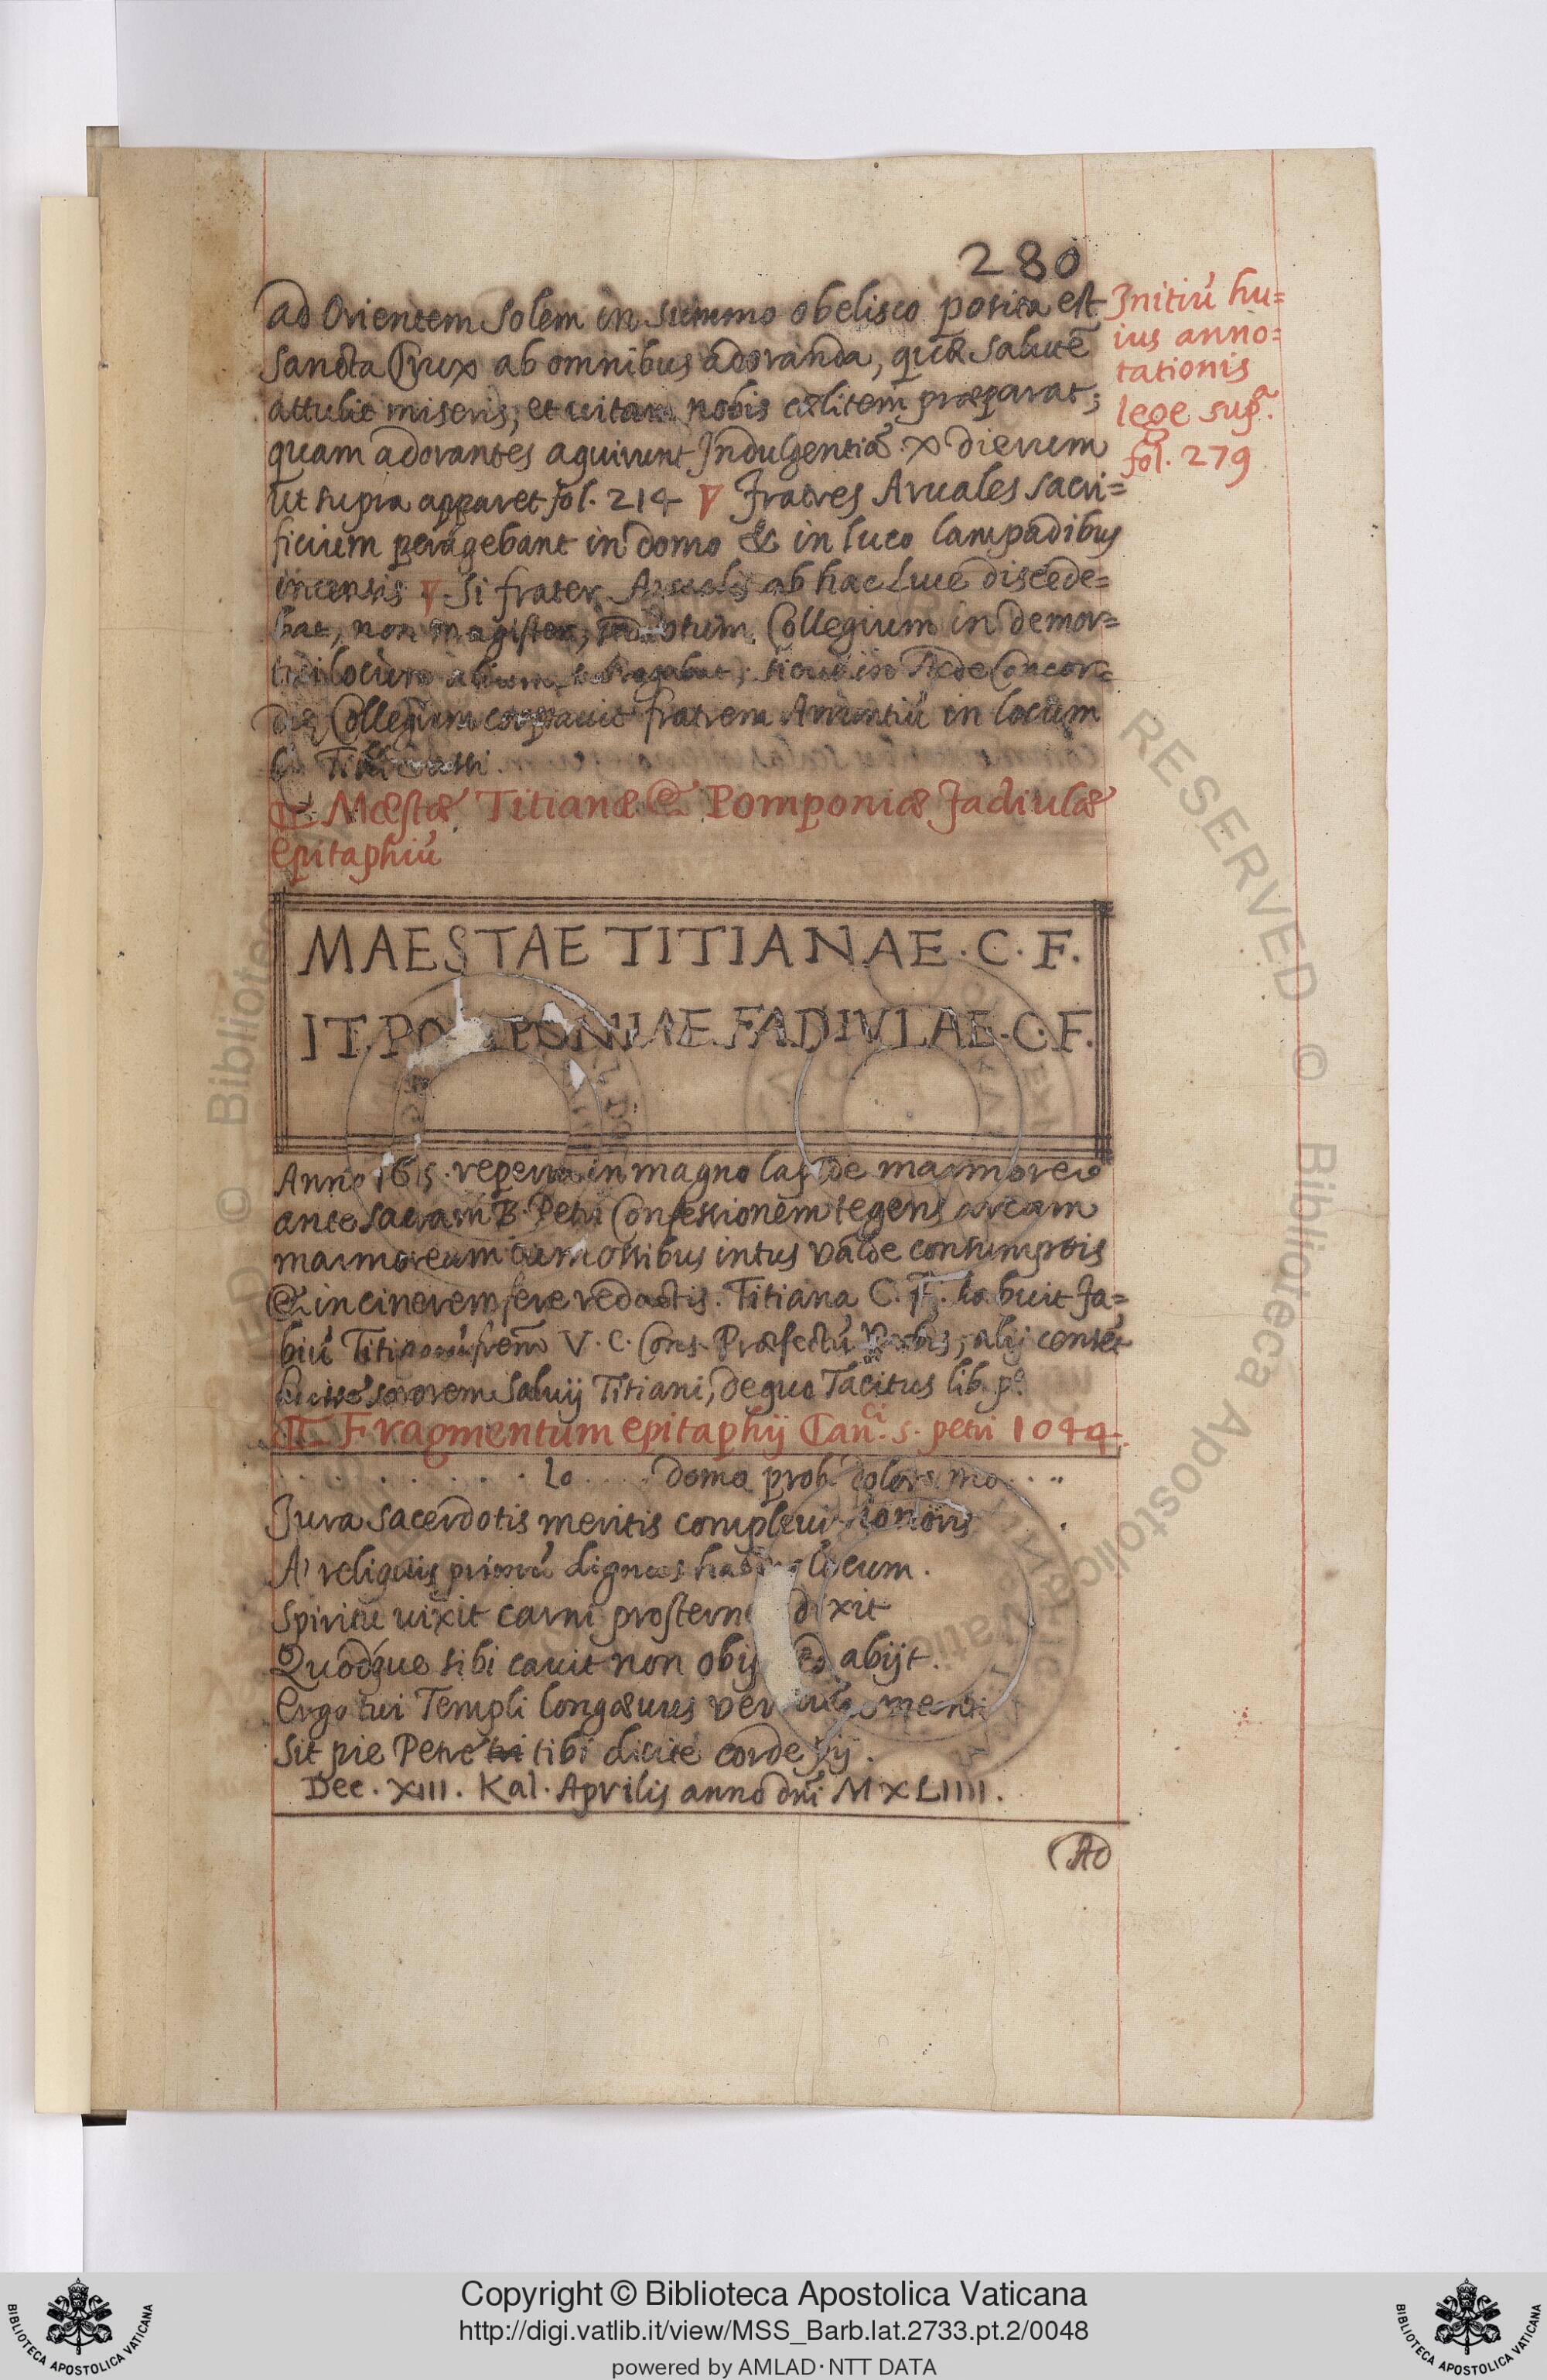 280
ad Orientem Solem in summo obelisco posita est
Sancta Crux ab omnibus adoranda, quæ salutē
attulit miseris, et vitam nobis cœlitem præparat;
quam adorantes aquirunt Indulgentiā X dierum
ut supra apparet fol. 214 Fratres Aruales sacri=
ficium peragebant in domo & in luco lampadibus
incensis Si frater Arualis ab hac luce discede=
bat, non magister, totum Collegium in demor=
tui locum alium ; sicut in Æde Concor=
diæ Collegium cooptauit fratrem in locum
Initiū hu=
ius anno=
tationis
lege supᵃ.
fol. 279
Mæstæ Titianæ & Pomponiæ Fadiulæ
epitaphiū
MAESTAE TITIANAE · C · F.
IT. POMPONIAE FADIVLAE · C · F.
Anno 1615 · reperta in magno lapide marmoreo
ante sacram B. Petri Confessionem tegens arcam
marmoream cum ossibus intus valde consumptis
& in cinerem fere redactis. Titiana C. F. habuit Fa=
biū Titianū frem̄ V. C. Cons. Præfectū Vrbis, alij consēt
fuisse sororem Saluij Titiani, de quo Tacitus lib. pº
Fragmentum epitaphij Canᶜⁱ. s. petri 1044.
. . . . . . . lo . . . . domo proh dolor mo . . . .
Iura Sacerdotis meritis compleuit honoris
A reliquis primū dignus locum.
Spiritu uixit carni dixit
Quodque sibi cauit non abijt.
Ergo tui Templi longæuus
Sit pie Petre tibi dicite corde pij.
Dec. XIII. Kal. Aprilis anno dn̄i MXLIIII.
Ad
RESERVED © Biblioteca Apostolica Vaticana
Copyright © Biblioteca Apostolica Vaticana
http://digi.vatlib.it/view/MSS_Barb.lat.2733.pt.2/0048
powered by AMLAD·NTT DATA
BIBLIOTECA APOSTOLICA VATICANA
BIBLIOTECA APOSTOLICA VATICANA